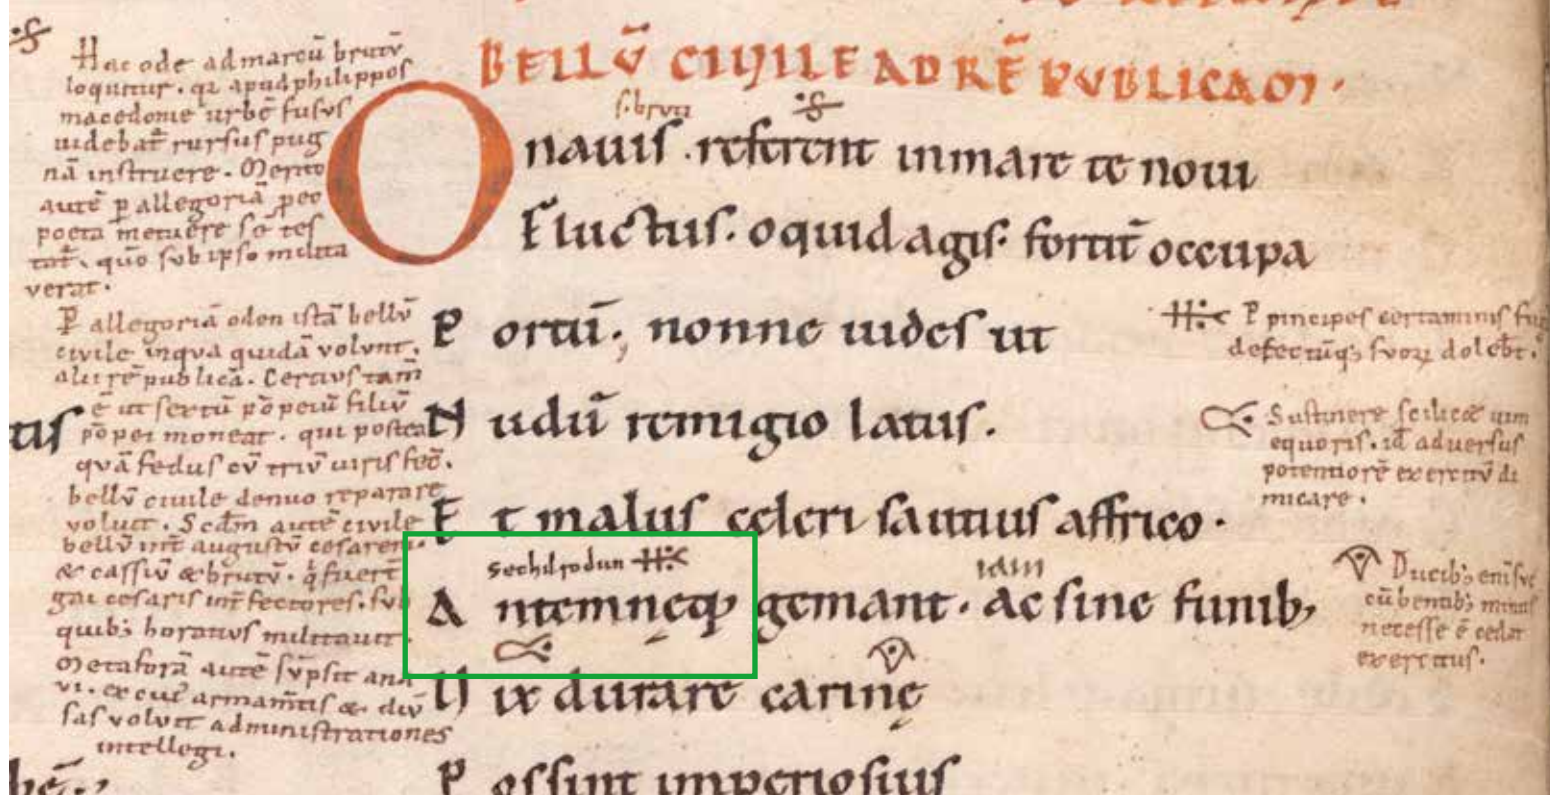 BELLV̄ CIVILE AD RĒ PVBLICAM.
s. bruti
O nauis . referent inmare te noui
Fluctus. o quid agis. fortit̄ occupa
P ortū. nonne uides ut
N udū remigio latus.
E t malus celeri saucius affrico.
sechilzodun
A ntemneq; gemant. ac sine funib;
iam
U ix durare carinę
P ossint imperiosius
Hac ode ad marcū brutū
loquitur. qi apud philippos
macedonie urbē fusus
uidebat̄ rursus pug
nā instruere. Merito
autē p̲ allegoriā
poeta metuere
quō sub ipso milita
verat.
P̲ allegoriā oden istā bellū
civile inqua quidā volunt.
alii rē publicā. Certius tam̄
ē ut sertū pōpeiū filiū
pōpei moneat. qui postea
quā fedus cū triū uiris fec̄.
bellū ciuile denuo reparare
voluit. Scdm̄ autē civile
bellū int̄ augustū cesarem.
& cassiū & brutū. q̄ fuer̄
gai cesaris int̄fectores. sub
quib; horatius militauit.
Metaforā autē sūpsit a na
vi. ex cui; armam̄tis & diū
sas voluit administrationes
intellegi.
P̲ pincipes certaminis
defectūq; suoꝝ doleb̄t.
Sustinere scilicet uim
equoris. id̄ aduersus
potentiorē exercitū di
micare.
Ducib; eni
cūbentib;
necesse ē cedat
exercitus.
tis